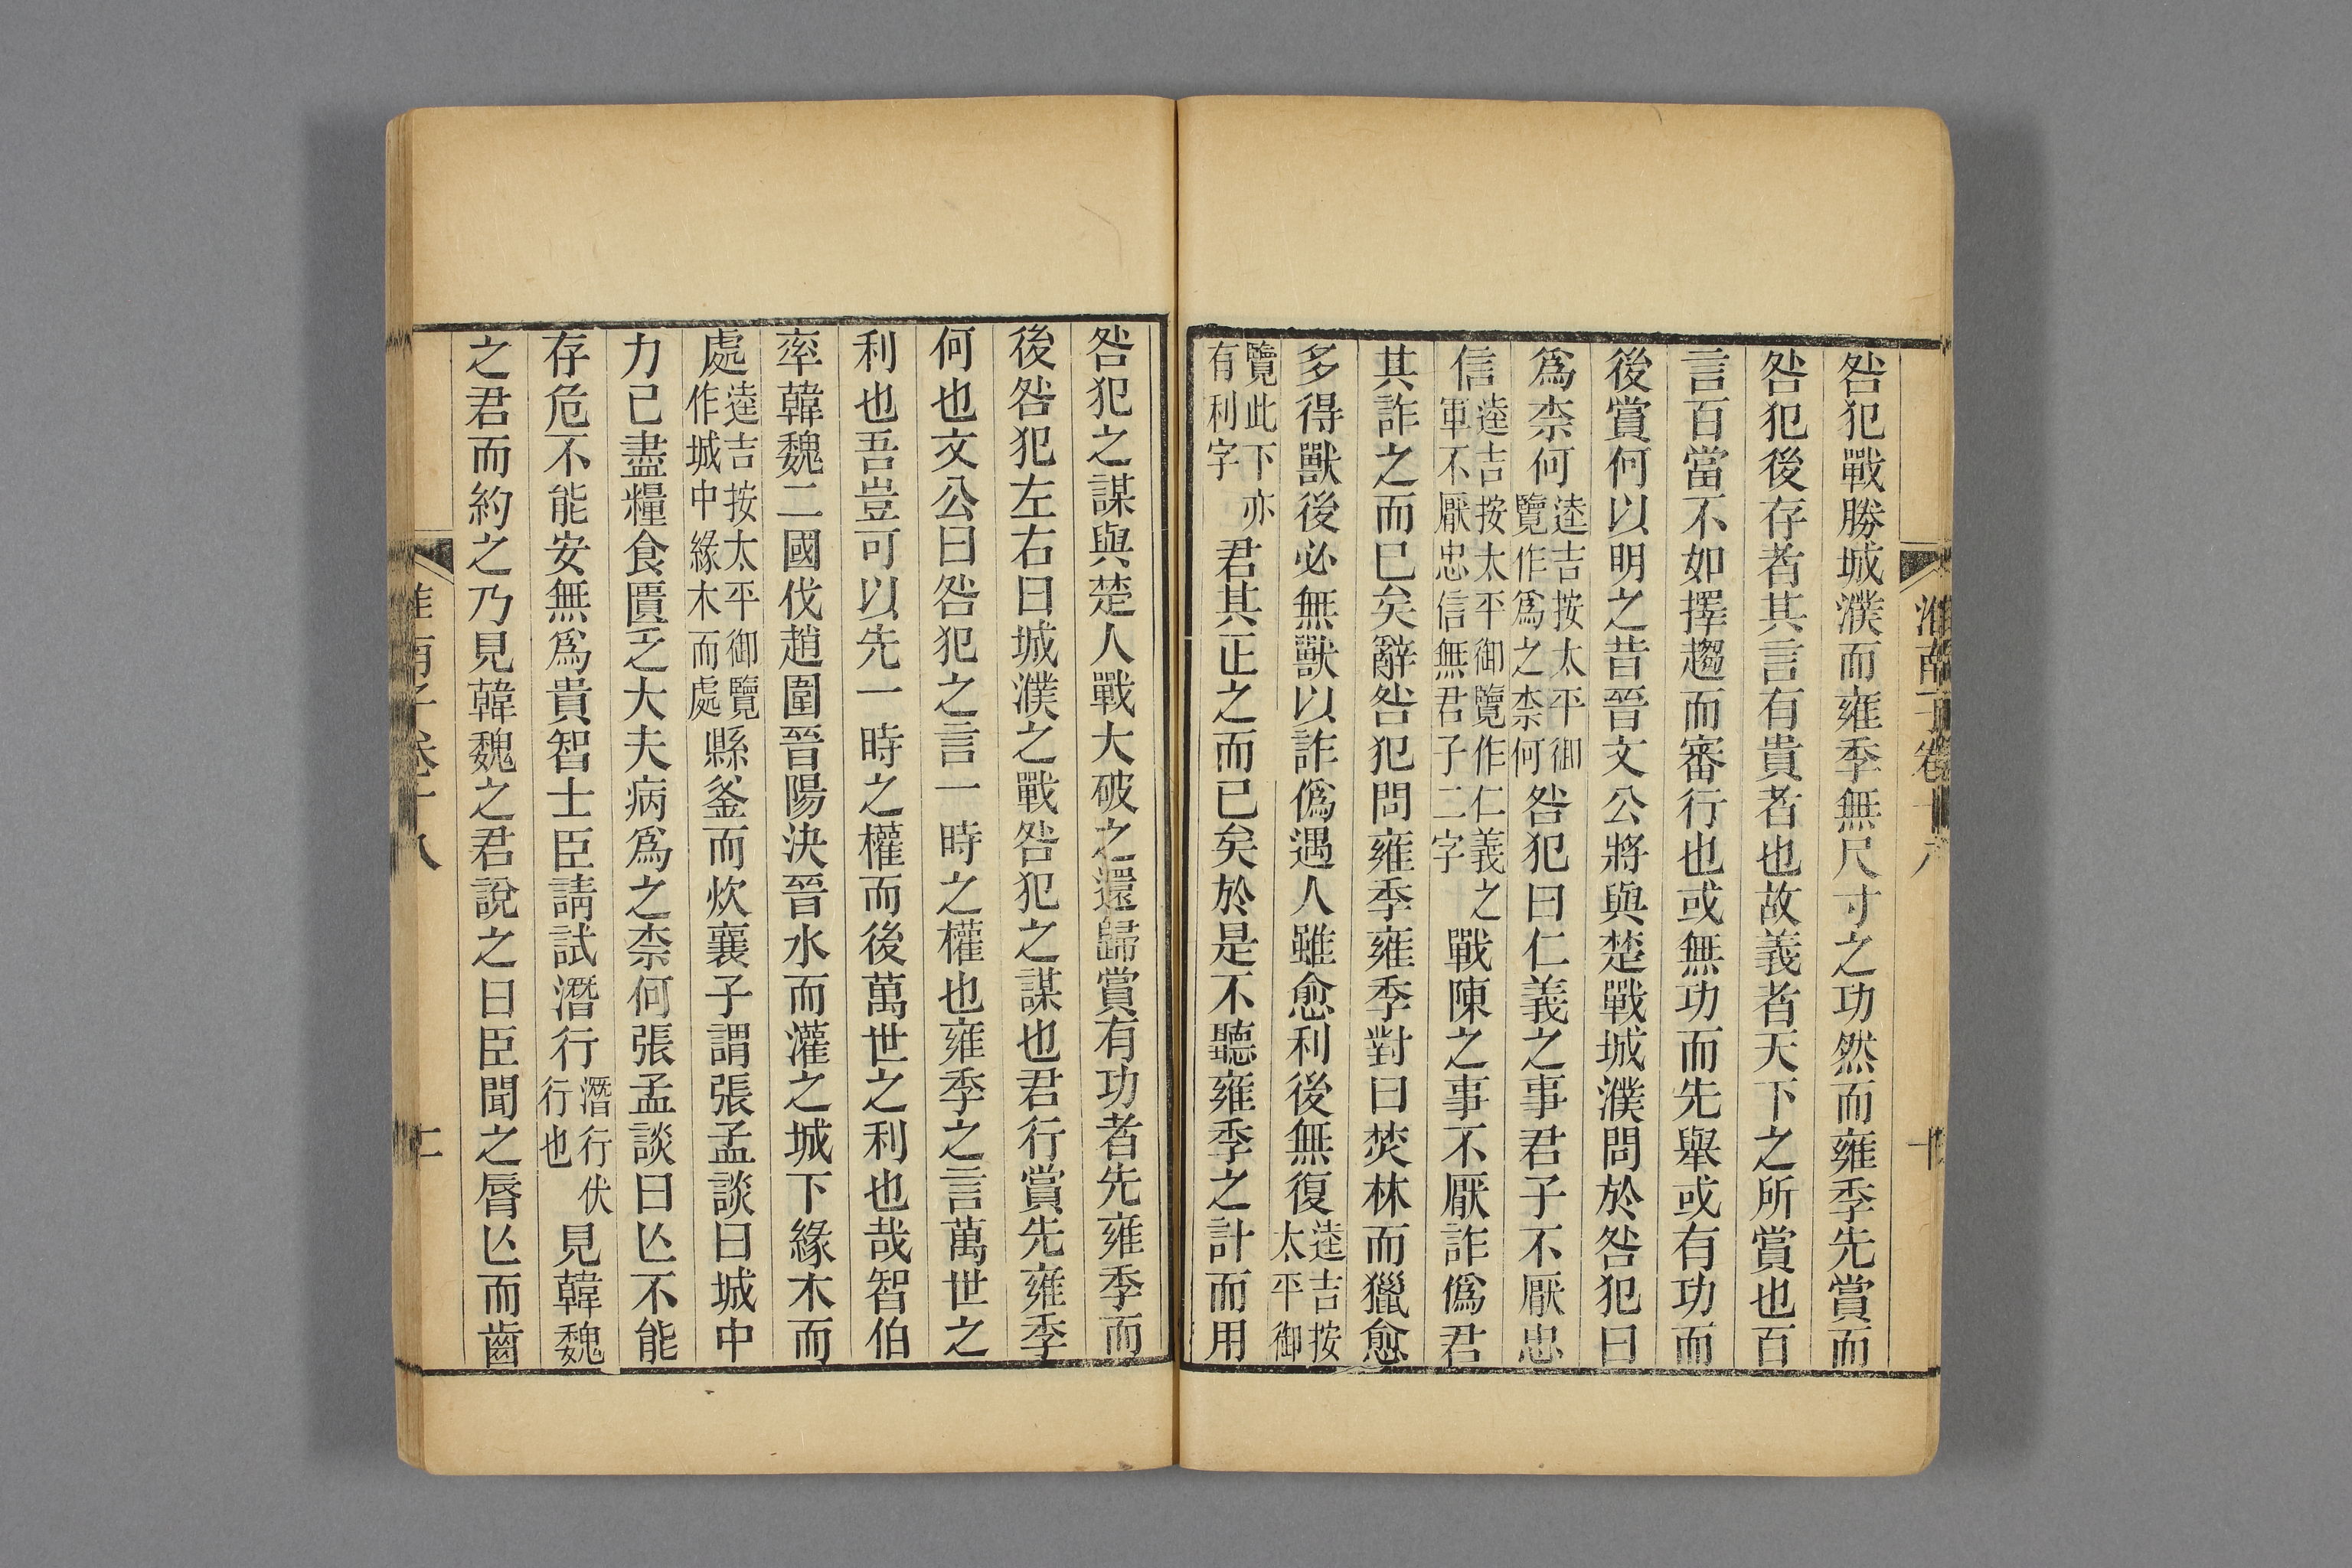 淮南子卷十八
十
咎犯戰勝城濮而雍季無尺寸之功然而雍季先賞而
咎犯後存者其言有貴者也故義者天下之所賞也百
言百當不如擇趨而審行也或無功而先舉或有功而
後賞何以明之昔晉文公將與楚戰城濮問於咎犯曰
爲柰何逵吉按太平御覽作爲之柰何咎犯曰仁義之事君子不厭忠
信逵吉按太平御覽作仁義之軍不厭忠信無君子二字戰陳之事不厭詐僞君
其詐之而已矣辭咎犯問雍季雍季對曰焚林而獵愈
多得獸後必無獸以詐僞遇人雖愈利後無復逵吉按太平御
覽此下亦有利字君其正之而已矣於是不聽雍季之計而用
咎犯之謀與楚人戰大破之還歸賞有功者先雍季而
後咎犯左右曰城濮之戰咎犯之謀也君行賞先雍季
何也文公曰咎犯之言一時之權也雍季之言萬世之
利也吾豈可以先一時之權而後萬世之利也哉智伯
率韓魏二國伐趙圍晉陽決晉水而灌之城下緣木而
處逵吉按太平御覽作城中緣木而處縣釜而炊襄子謂張孟談曰城中
力已盡糧食匱乏大夫病爲之柰何張孟談曰亾不能
存危不能安無爲貴智士臣請試潛行潛行伏行也見韓魏
之君而約之乃見韓魏之君說之曰臣聞之脣亾而齒
淮南子卷十八